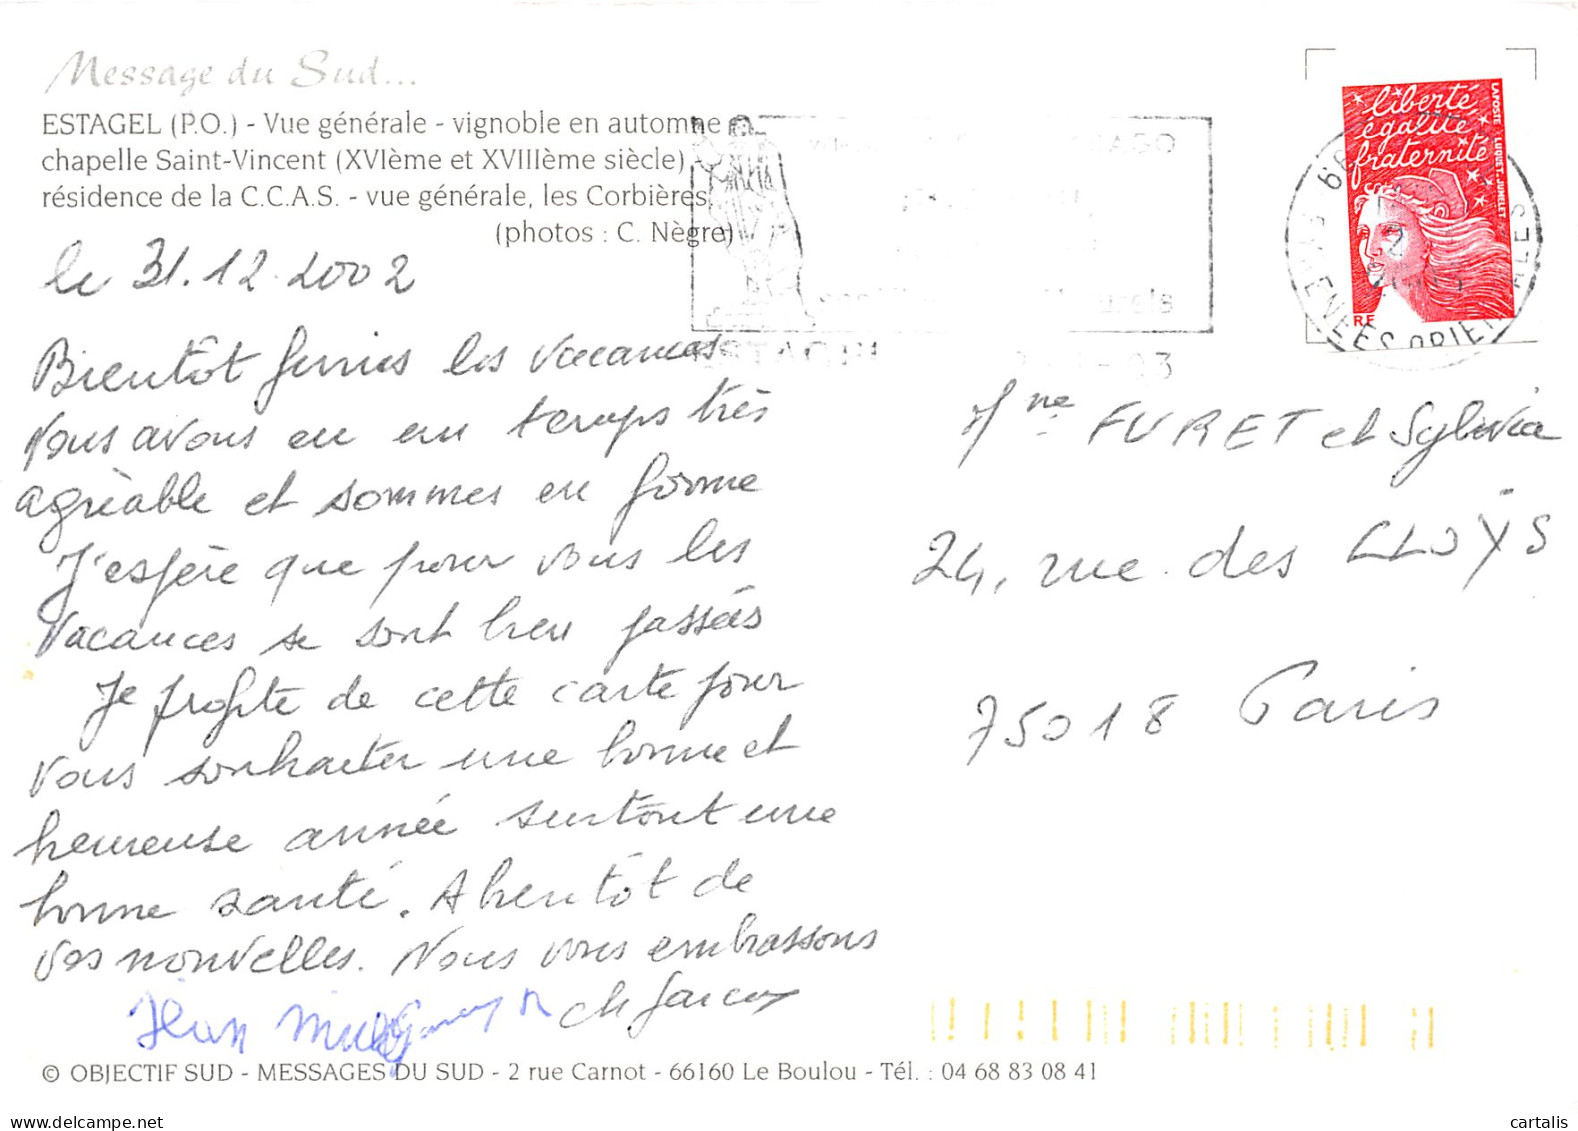 Message du Sud...
ESTAGEL (P.O.) - Vue générale - vignoble en automne
chapelle Saint-Vincent (XVIème et XVIIIème siècle)
résidence de la C.C.A.S. - vue générale, les Corbières.
(photos : C. Nègre)
liberté
égalité
fraternité
LAPOSTE LUQUET-JUMELET
RF
le 31.12.2002
Bientôt finies les vacances
Nous avons eu un temps très
agréable et sommes en forme
J'espère que pour vous les
vacances se sont bien passées
Je profite de cette carte pour
vous souhaiter une bonne et
heureuse année surtout une
bonne santé. A bientôt de
vos nouvelles. Nous vous embrassons
Jean
Mme FURET et Sylvia
24, rue des CLOŸS
75018 Paris
© OBJECTIF SUD - MESSAGES DU SUD - 2 rue Carnot - 66160 Le Boulou - Tél. : 04 68 83 08 41
delcampe.net
cartalis